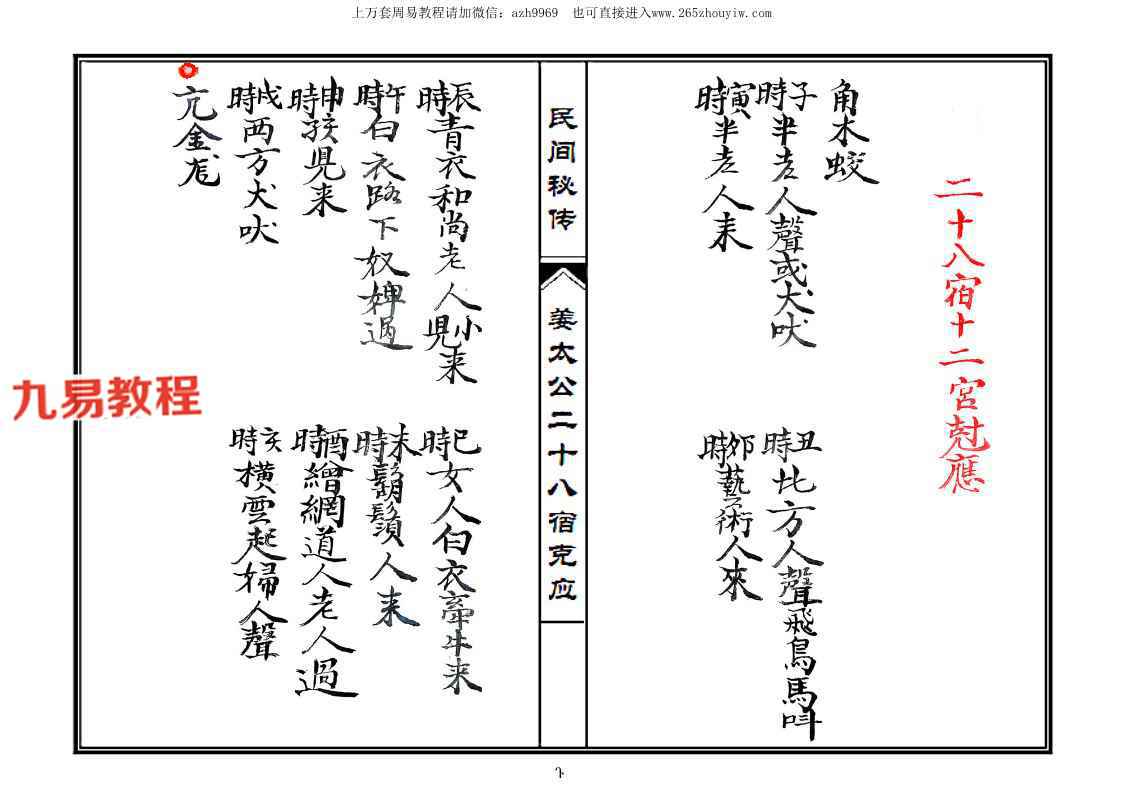 上万套周易教程请加微信：azh9969 也可直接进入www.265zhouyiw.com
二十八宿十二宮尅應
角木蛟
子時半老人聲或犬吠
丑時北方人聲飛鳥馬叫
寅時半老人来
卯時藝術人來
民间秘传
姜太公二十八宿克应
辰時青衣和尚老人小兒来
巳時女人白衣牽牛来
午時白衣路下奴婢過
未時鬍鬚人来
申時孩兒来
酉時繒網道人老人過
戌時西方犬吠
亥時橫雲起婦人聲
亢金龙
九易教程